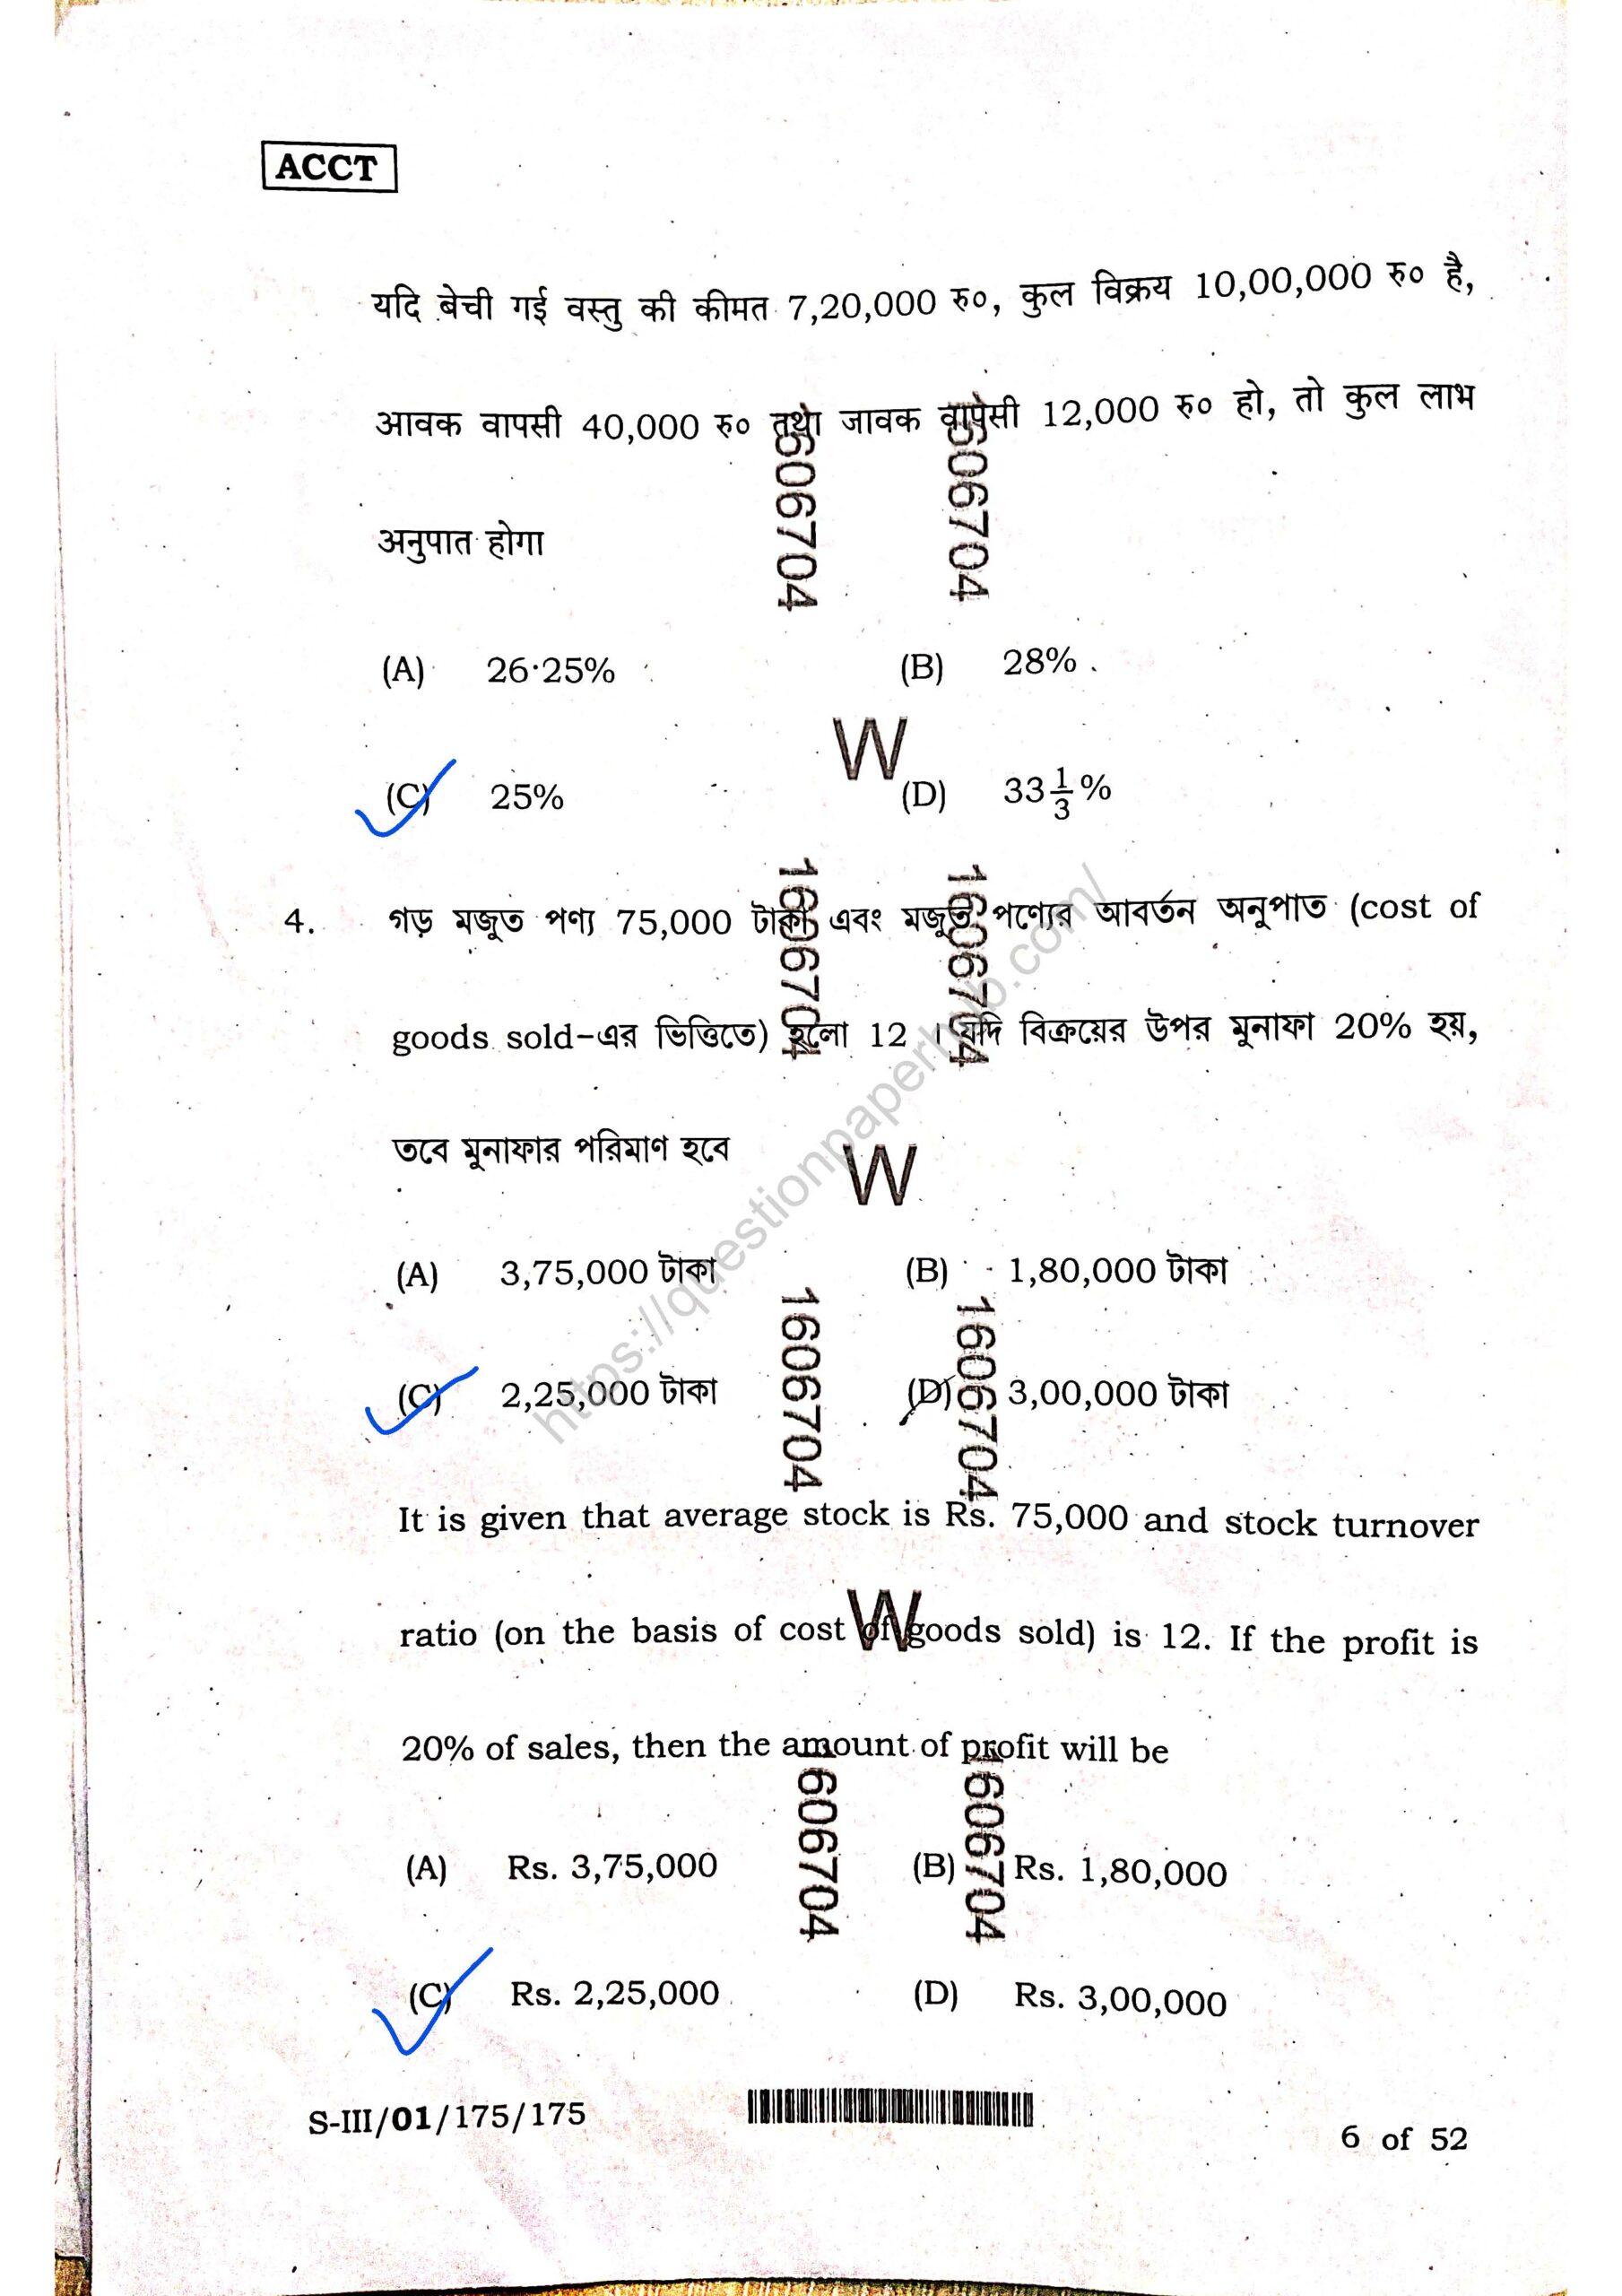 ACCT
यदि बेची गई वस्तु की कीमत 7,20,000 रु०, कुल विक्रय 10,00,000 रु० है,
आवक वापसी 40,000 रु० तथा जावक वापसी 12,000 रु० हो, तो कुल लाभ
अनुपात होगा
1606704 1606704
(A) 26·25% (B) 28%
W
(C) 25% (D) 33 1/3 %
4. গড় মজুত পণ্য 75,000 টাকা এবং মজুত পণ্যের আবর্তন অনুপাত (cost of
goods sold-এর ভিত্তিতে) হলো 12 । যদি বিক্রয়ের উপর মুনাফা 20% হয়,
1606704 1606704
তবে মুনাফার পরিমাণ হবে
W
https://questionpaperhub.com/
(A) 3,75,000 টাকা (B) 1,80,000 টাকা
(C) 2,25,000 টাকা (D) 3,00,000 টাকা
1606704 1606704
It is given that average stock is Rs. 75,000 and stock turnover
ratio (on the basis of cost of goods sold) is 12. If the profit is
W
20% of sales, then the amount of profit will be
1606704 1606704
(A) Rs. 3,75,000 (B) Rs. 1,80,000
(C) Rs. 2,25,000 (D) Rs. 3,00,000
S-III/01/175/175
6 of 52